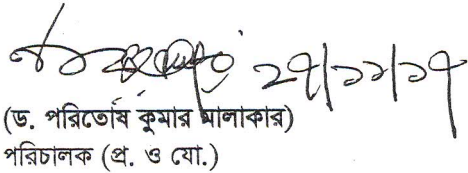 ২৭/১১/১৭
(ড. পরিতোষ কুমার মালাকার)
পরিচালক (প্র. ও যো.)